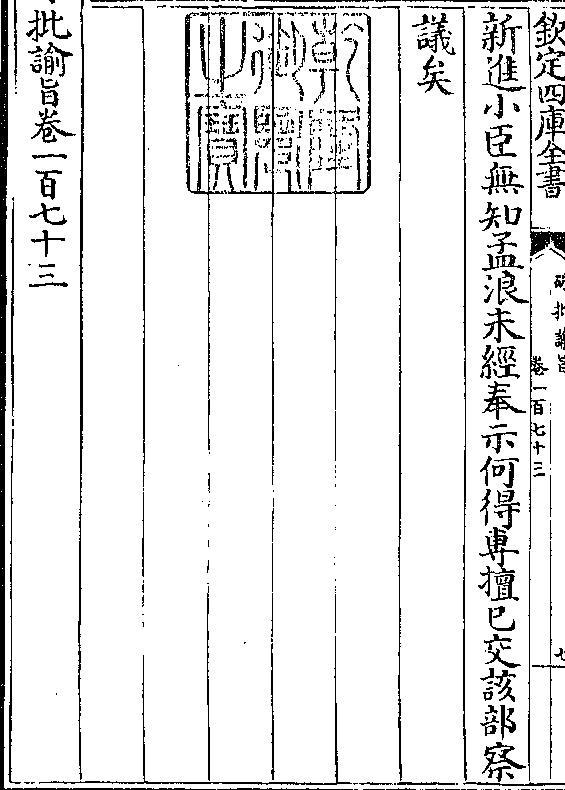 欽定四庫全書
硃批諭旨
卷一百七十三
七
新進小臣無知孟浪未經奉示何得專擅已交該部察
議矣
乾隆御覽之寶
批諭旨卷一百七十三